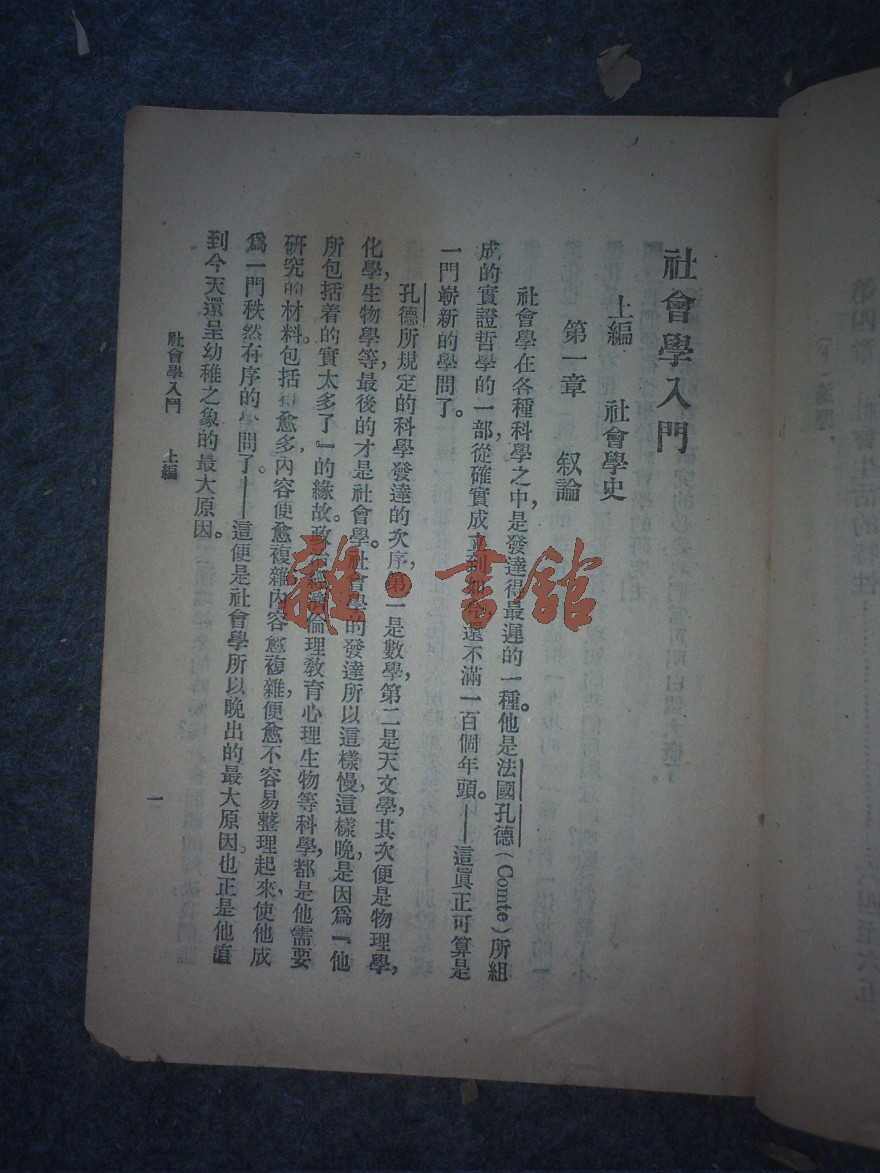 社會學入門
上編　社會學史
第一章　叙論
社會學在各種科學之中，是發達得最遲的一種。他是法國孔德（Comte）所組
成的實證哲學的一部從確實成立到如今還不滿一百個年頭。——這眞正可算是
一門嶄新的學問了。
孔德所規定的科學發達的次序，第一是數學，第二是天文學，其次便是物理學，
化學，生物學等，最後的才是社會學。社會學的發達所以這樣慢，這樣晚，是因爲『他
所包括着的實太多了』的緣故。政治經濟倫理敎育心理生物等科學，都是他需要
研究的材料。包括得愈多，內容便愈複雜，內容愈複雜，便愈不容易整理起來，使他成
爲一門秩然有序的學問了。——這便是社會學所以晚出的最大原因。也正是他直
到今天還呈幼稚之象的最大原因。
社會學入門　上編
一
雜·書館
第四章　社會生活的特性……六四至六五